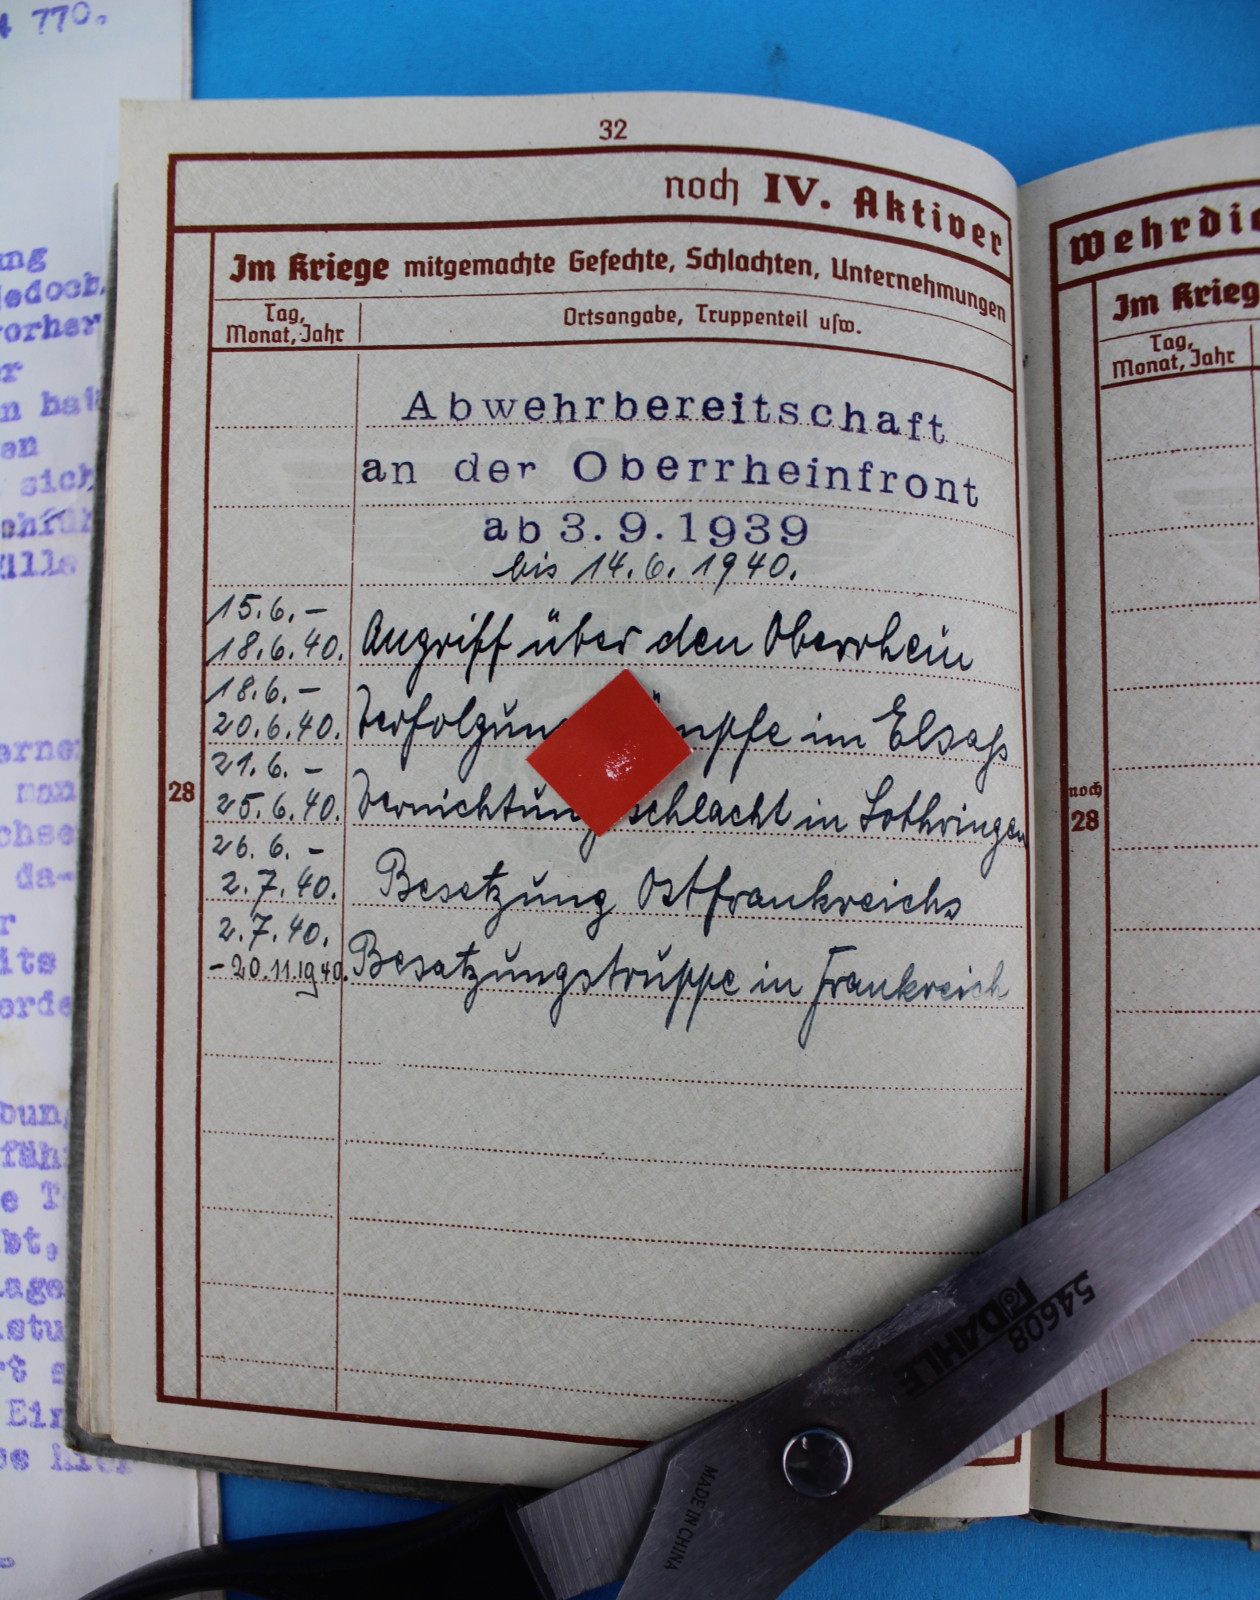 4 770.
ung
jedoch
vorher
er
en
sich
Wille
man
da-
r
Ein
32
noch IV. Aktiver
Im Kriege mitgemachte Gefechte, Schlachten, Unternehmungen
Tag, Monat, Jahr
Ortsangabe, Truppenteil usw.
Abwehrbereitschaft
an der Oberrheinfront
ab 3.9.1939
bis 14.6.1940.
15.6.–
18.6.40. Angriff über den Oberrhein
18.6.–
20.6.40. Verfolgun mpfe im Elsaß
21.6.–
28
25.6.40. Vernichtung schlacht in Lothringen
26.6.–
2.7.40. Besetzung Ostfrankreichs
2.7.40.
-20.11.1940. Besatzungstruppe in Frankreich
Wehrdie
Im Krieg
Tag,
Monat, Jahr
noch
28
54608
DAHLE
MADE IN CHINA